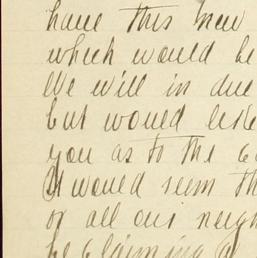 have this new
which would be
We will in due
but would like
you as to the
It would seem
or all our neigh
be claiming a